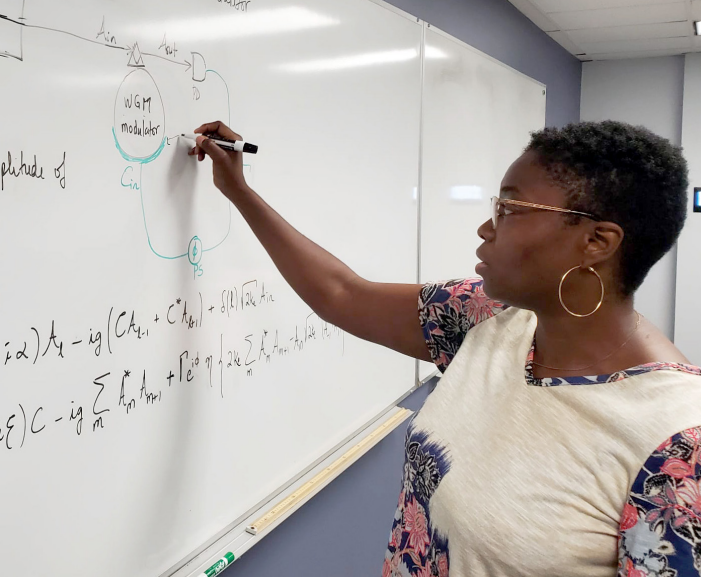 A_in
A_out
D
WGM
modulator
C_in
plitude of
PS
iα) A_ℓ - ig (CA_ℓ-1 + C* A_ℓ+1) + δ(ℓ) √2k_e A_in
ξ) C - ig ∑_m A*_m A_m+1 + Γe^iϕ η { 2k_e ∑_m A*_m A_m+1